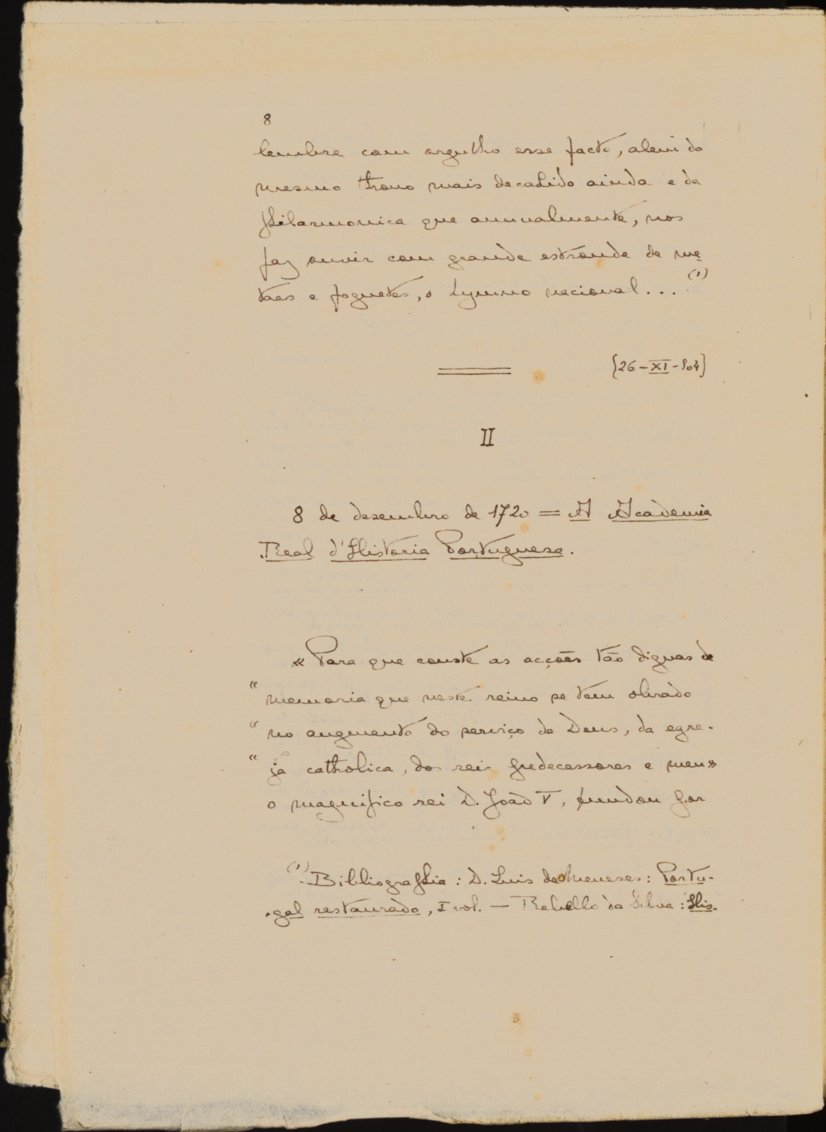 8
lembre com orgulho esse facto, alem do
mesmo trono mais decahido ainda e da
philarmonica que annualmente, nos
faz ouvir com grande estronde de me
taes e foguetes, o hymno nacional... (1)
[26-XI-904]
II
8 de desembro de 1720 = A Academia
Real d'Historia Portuguesa.
« Para que conste as acções tão dignas de
“ memoria que neste reino se tem obrado
“ no augmento do serviço de Deus, da egre-
“ ja catholica, dos reis predecessores e meu»
o magnifico rei D. João V, fundou por
(1) Bibliographia: D. Luis de Meneses: Portu-
gal restaurado, I vol. — Rebello da Silva: His-